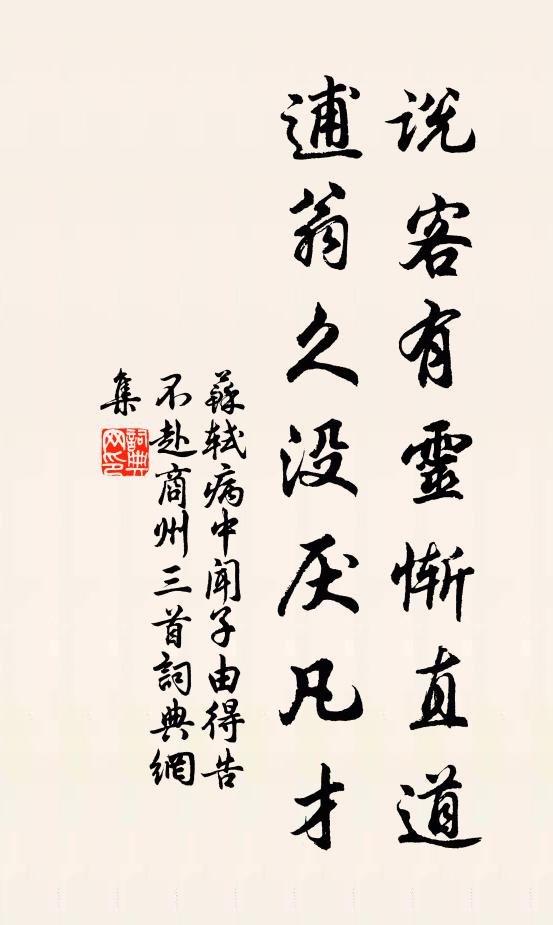 说客有靈慚直道
逋翁久没厌凡才
蘇軾病中闻子由得告
不赴商州三首詞典網
集
詞典
网印